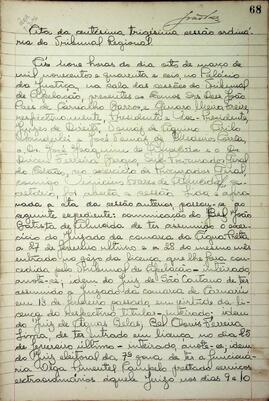 68
Ata da centésima trigésima sessão ordiná-
ria do Tribunal Regional
Às nove horas do dia oito de março de
mil novecentos e quarenta e seis, no Palácio
da Justiça, na sala das sessões do Tribunal
de Apelação, presentes os Exmos Srs Des. João
Paes de Carvalho Barros, e Genaro Freire
respectivamente, Presidente e Vice-Presidente,
Juizes de Direito, Tomaz de Aquino Cirilo
Wanderlei e José
e Dr. José Joaquim de
Ferreira Borges, Procurador Geral
do Estado, no exercicio de Procurador Geral,
comigo
secretário, foi aberta a sessão. Lida e apro-
vada a ata da sessão anterior, passou-se ao
seguinte expediente: comunicação do Bel João
Batista de de ter assumido o exer-
cicio do Juizado da comarca de
a 27 de fevereiro último e a 28 do mesmo mês
entrado no gôzo da licença que lhe fôra con-
cedida pelo Tribunal de Apelação - inteirado,
anote-se; idem do Juiz de São Caetano de ter
assumido o Juizado da comarca de Caruarú
em 13 de fevereiro passado em virtude da li-
cença do respectivo titular - inteirado; idem
do Juiz de Aguas Belas, Bel Clovis Ferreira
Lima, de ter entrado em licença no dia 28
de fevereiro último - inteirado, anote-se; idem
do Juiz eleitoral da 7ª zona de ter a funcioná-
ria Olga Pimentel prestado serviços
extraordinários àquele Juizo nos dias 9 e 10